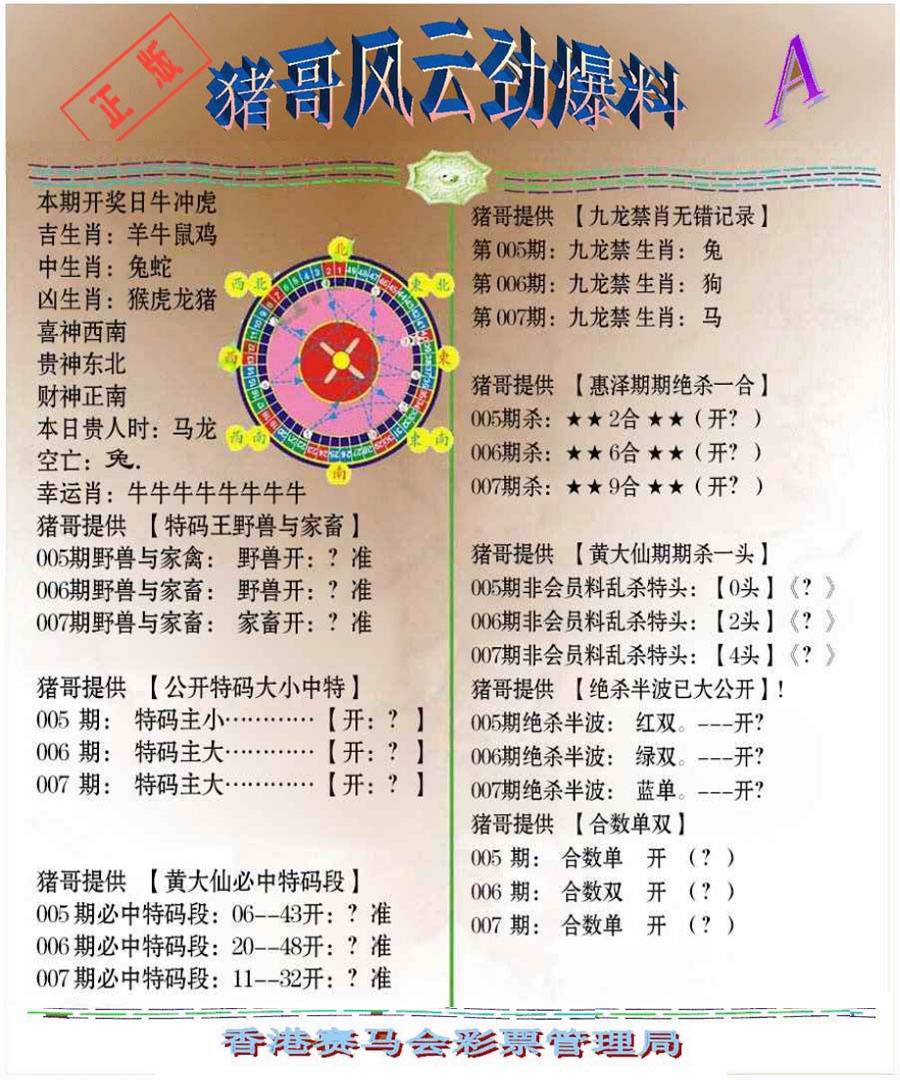 正版
猪哥风云劲爆料
A
本期开奖日牛冲虎
吉生肖：羊牛鼠鸡
中生肖：兔蛇
凶生肖：猴虎龙猪
喜神西南
贵神东北
财神正南
本日贵人时：马龙
空亡：兔.
幸运肖：牛牛牛牛牛牛牛牛
北
西北
東北
西
東
西南
東南
南
猪哥提供 【特码王野兽与家畜】
005期野兽与家禽： 野兽开：？准
006期野兽与家畜： 野兽开：？准
007期野兽与家畜： 家畜开：？准
猪哥提供 【公开特码大小中特】
005 期： 特码主小…………【开：？】
006 期： 特码主大…………【开：？】
007 期： 特码主大…………【开：？】
猪哥提供 【黄大仙必中特码段】
005期必中特码段：06--43开：？准
006期必中特码段：20--48开：？准
007期必中特码段：11--32开：？准
猪哥提供 【九龙禁肖无错记录】
第005期：九龙禁生肖： 兔
第006期：九龙禁生肖： 狗
第007期：九龙禁生肖： 马
猪哥提供 【惠泽期期绝杀一合】
005期杀：★★2合★★（开？）
006期杀：★★6合★★（开？）
007期杀：★★9合★★（开？）
猪哥提供 【黄大仙期期杀一头】
005期非会员料乱杀特头：【0头】《？》
006期非会员料乱杀特头：【2头】《？》
007期非会员料乱杀特头：【4头】《？》
猪哥提供 【绝杀半波已大公开】！
005期绝杀半波： 红双。---开？
006期绝杀半波： 绿双。---开？
007期绝杀半波： 蓝单。---开？
猪哥提供 【合数单双】
005 期： 合数单 开 （？）
006 期： 合数双 开 （？）
007 期： 合数单 开 （？）
香港赛马会彩票管理局